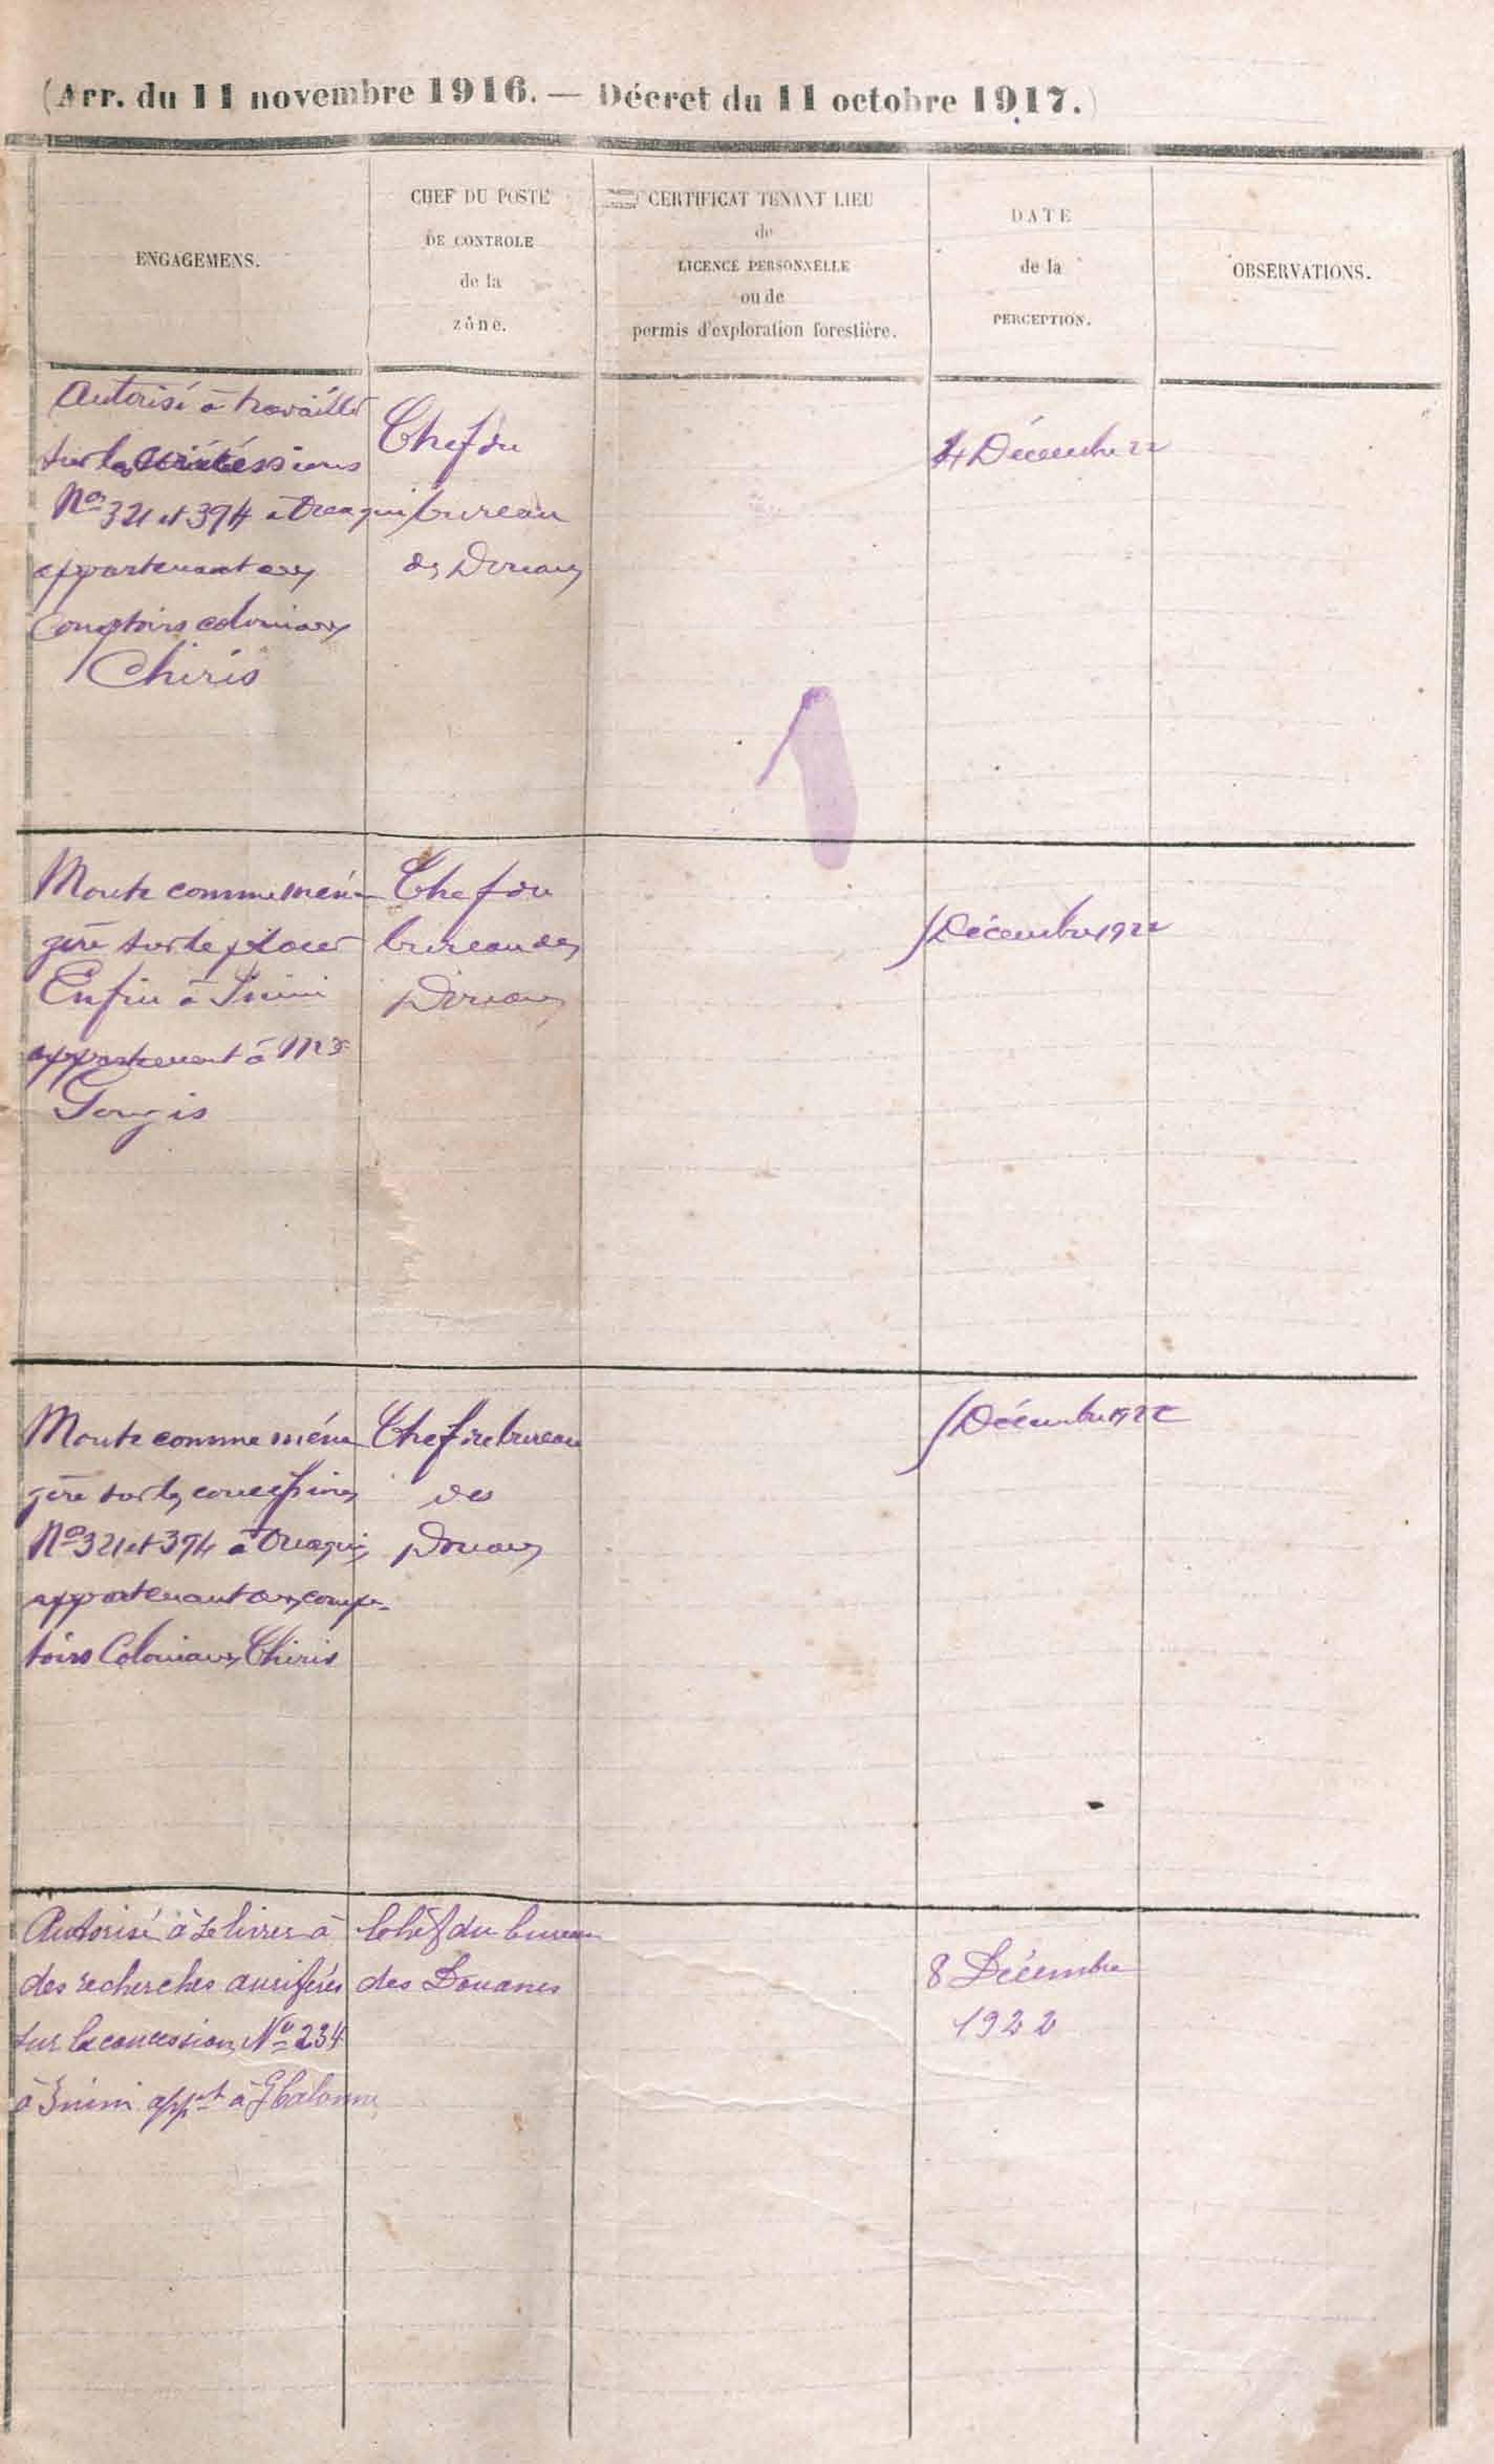 (Arr. du 11 novembre 1916. — Décret du 11 octobre 1917.)
ENGAGEMENS.
CHEF DU POSTE
DE CONTROLE
de la
zône.
CERTIFICAT TENANT LIEU
de
LICENCE PERSONNELLE
ou de
permis d'exploration forestière.
DATE
de la
PERCEPTION.
OBSERVATIONS.
Autorisé à travailler
sur les
Nos 321 et 394 à
appartenant aux
Comptoirs coloniaux
Chiris
Chef du
bureau
des Douanes
4 Décembre 22
Monte comme ména-
gère sur le placer
Enfin à Inini
appartenant à Mr
Gougis
Chef du
bureau des
Douanes
Décembre 1922
Monte comme ména
gère sur les concessions
Nos 321 et 394 à
appartenant aux comp-
toirs Coloniaux Chiris
Chef du bureau
des
Douanes
Décembre 1922
Autorisé à se livrer à
des recherches aurifères
sur la concession No 234
à Inini appt à
Chef du bureau
des Douanes
8 Décembre
1922